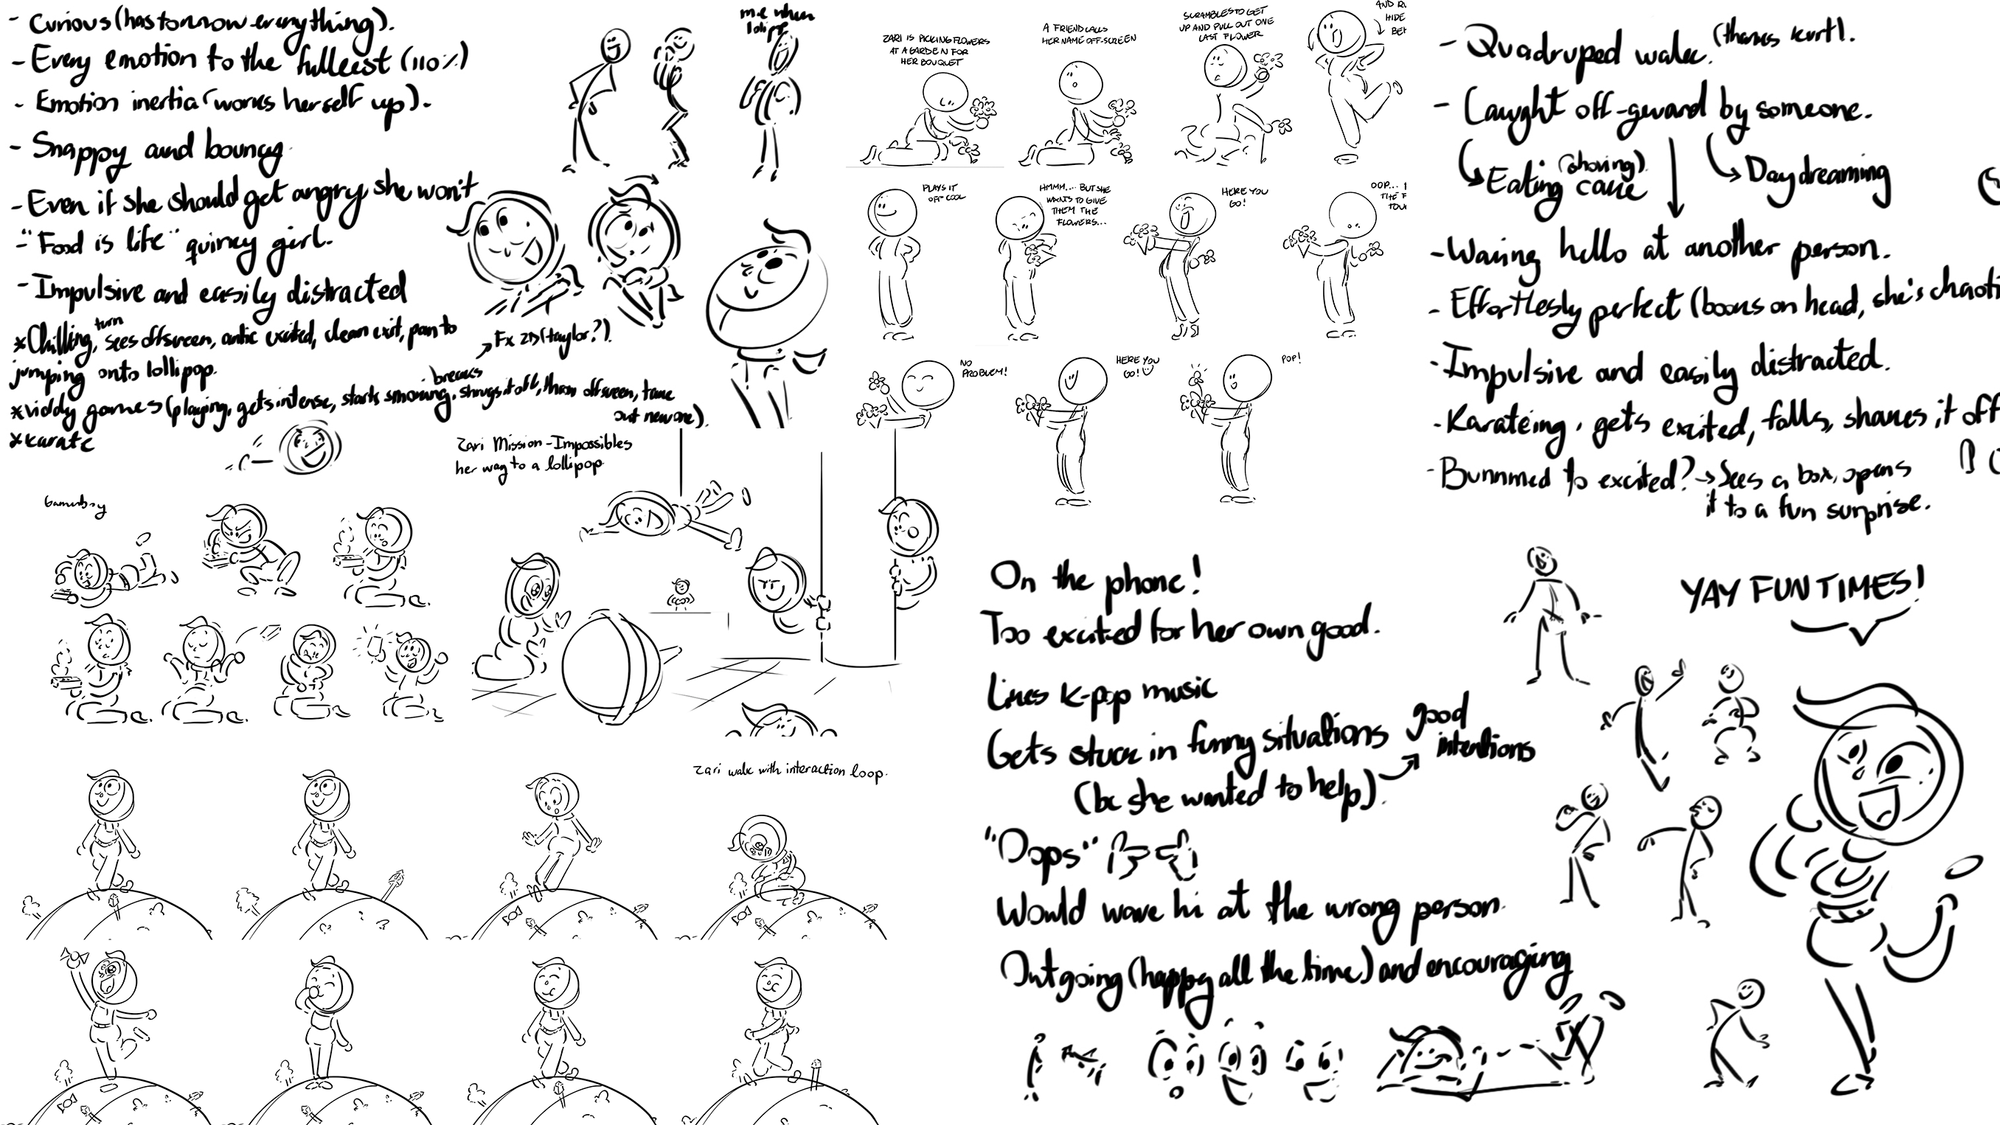 - Curious (has to know everything).
- Every emotion to the fullest (110%)
- Emotion inertia (works herself up).
- Snappy and bouncy
- Even if she should get angry she won't
- "Food is life" quirky girl.
- Impulsive and easily distracted
* Chilling, turn sees offscreen, antic excited, clean exit, pan to
jumping onto lollipop.
Fx 2D (taylor?).
* viddy games (playing, gets intense, starts smoking, breaks shrugs it off, throw offscreen, take
out new one).
* karate
me when
ZARI IS PICKING FLOWERS
AT A GARDEN FOR
HER BOUQUET
A FRIEND CALLS
HER NAME OFF-SCREEN
SCRAMBLES TO GET
UP AND PULL OUT ONE
LAST FLOWER
AND
HIDE
PLAYS IT
OFF COOL
HMMM... BUT SHE
WANTS TO GIVE
THEM THE
FLOWERS...
HERE YOU
GO!
OOP...
THE
NO
PROBLEM!
HERE YOU
GO!
POP!
Zari Mission-Impossibles
her way to a lollipop
Gameboy
Zari walk with interaction loop.
- Quadruped walk. (thanks kurt).
- Caught off-guard by someone.
Eating (shoving) cake
Daydreaming
- Waving hello at another person.
- Effortlessly perfect (books on head, she's chaoti
- Impulsive and easily distracted.
- Karateing. gets excited, falls, shakes it off
- Bummed to excited? → Sees a box, opens
it to a fun surprise.
On the phone!
Too excited for her own good.
Likes K-pop music
Gets stuck in funny situations
(bc she wanted to help).
good
intentions
"Oops"
Would wave hi at the wrong person.
Outgoing (happy all the time) and encouraging
YAY FUN TIMES!